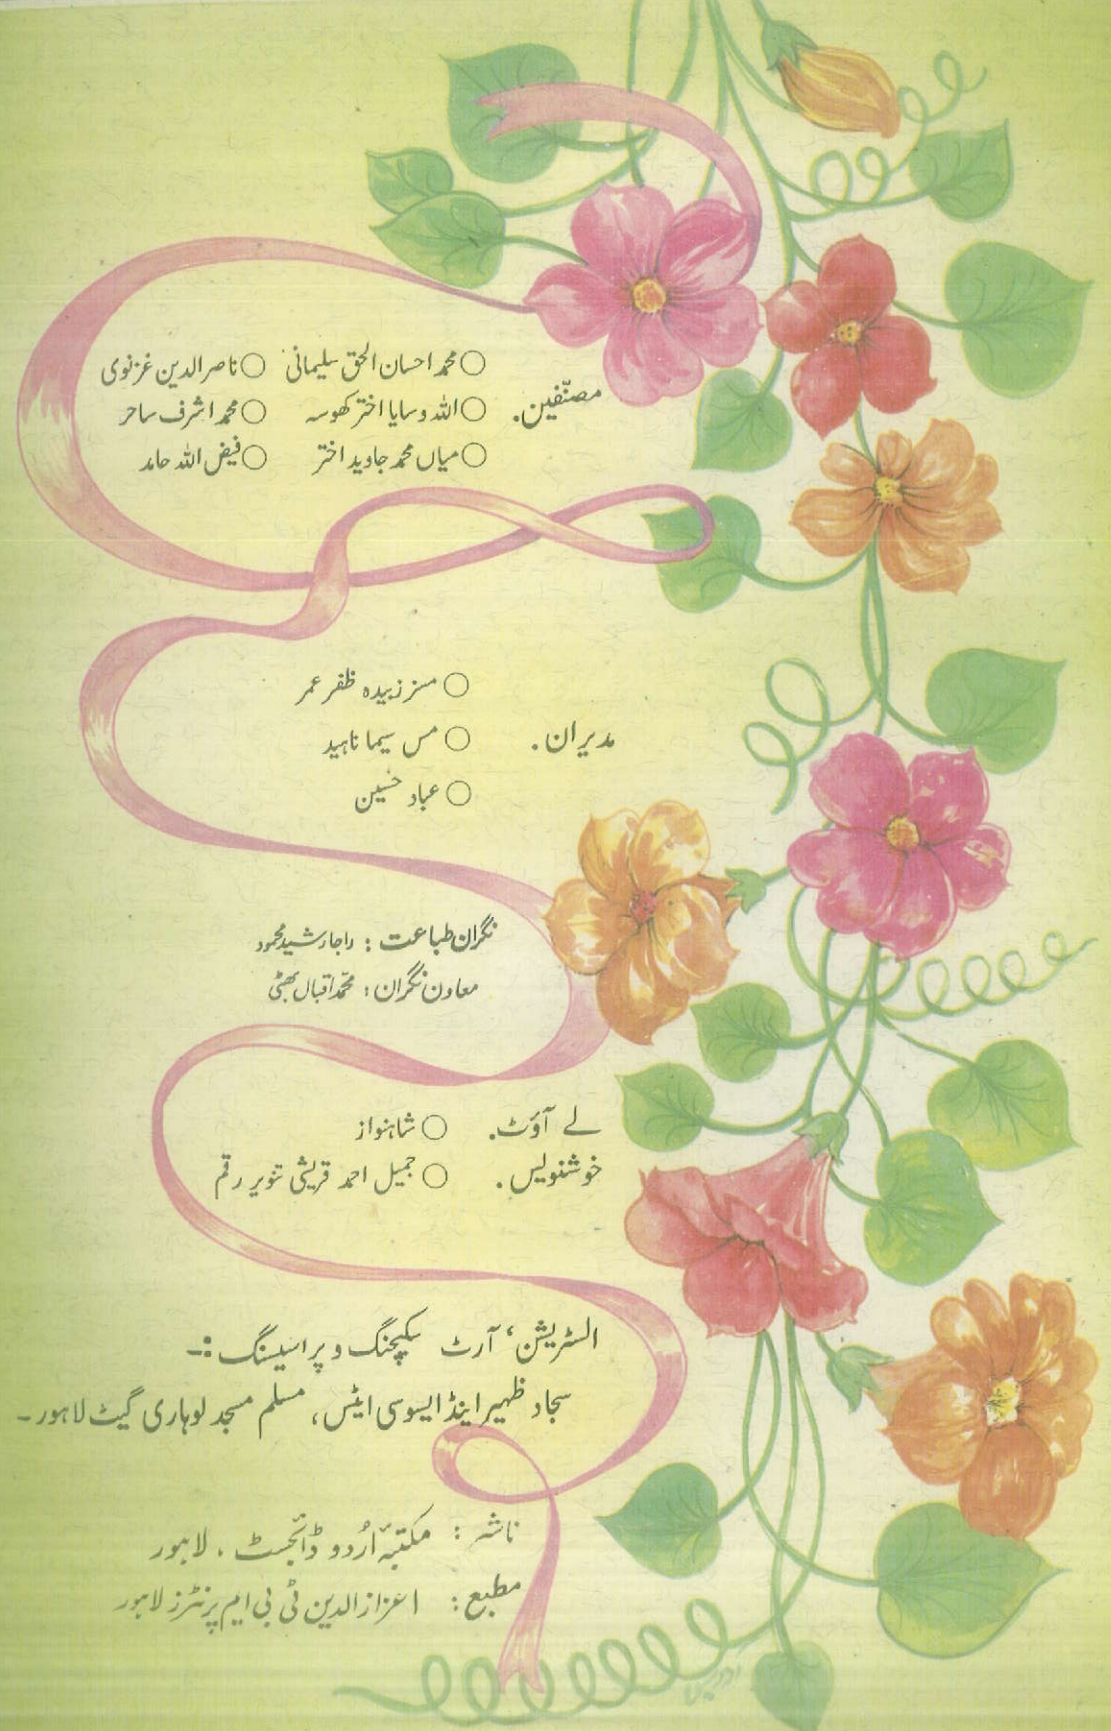 ○ محمد احسان الحق سلیمانی ○ ناصر الدین غزنوی
مصنّفین. ○ اللہ وسایا اختر کھوسہ ○ محمد اشرف ساحر
○ میاں محمد جاوید اختر ○ فیض اللہ حامد
○ مسز زبیدہ ظفر عمر
مدیران. ○ مس سیما ناہید
○ عباد حسین
نگران طباعت : راجا رشید محمود
معاون نگران : محمّد اقبال بھٹی
لے آؤٹ. ○ شاہنواز
خوشنویس. ○ جمیل احمد قریشی تنویر رقم
السٹریشن، آرٹ سکیچنگ و پراسیسنگ :-
سجاد ظہیر اینڈ ایسوسی ایٹس، مسلم مسجد لوہاری گیٹ لاہور۔
ناشر : مکتبۂ اُردو ڈائجسٹ . لاہور
مطبع : اعزاز الدین ٹی بی ایم پرنٹرز لاہور